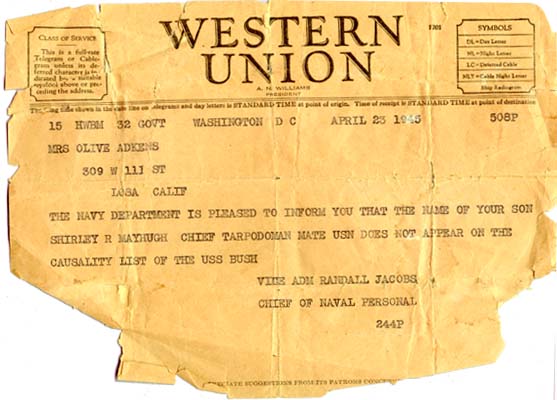 CLASS OF SERVICE
This is a full-rate
Telegram or Cable-
gram unless its de-
ferred character is in-
dicated by a suitable
symbol above or pre-
ceding the address.
WESTERN
UNION
A. N. WILLIAMS
PRESIDENT
1201
SYMBOLS
DL=Day Letter
NL=Night Letter
LC=Deferred Cable
NLT=Cable Night Letter
Ship Radiogram
time shown in the date line on telegrams and day letters is STANDARD TIME at point of origin. Time of receipt is STANDARD TIME at point of destination
15 HWBM 32 GOVT WASHINGTON D C APRIL 23 1945 508P
MRS OLIVE ADKENS
309 W 111 ST
LOSA CALIF
THE NAVY DEPARTMENT IS PLEASED TO INFORM YOU THAT THE NAME OF YOUR SON
SHIRLEY R MAYHUGH CHIEF TARPODOMAN MATE USN DOES NOT APPEAR ON THE
CAUSALITY LIST OF THE USS BUSH
VICE ADM RANDALL JACOBS
CHIEF OF NAVAL PERSONAL
244P
SUGGESTIONS FROM ITS PATRONS